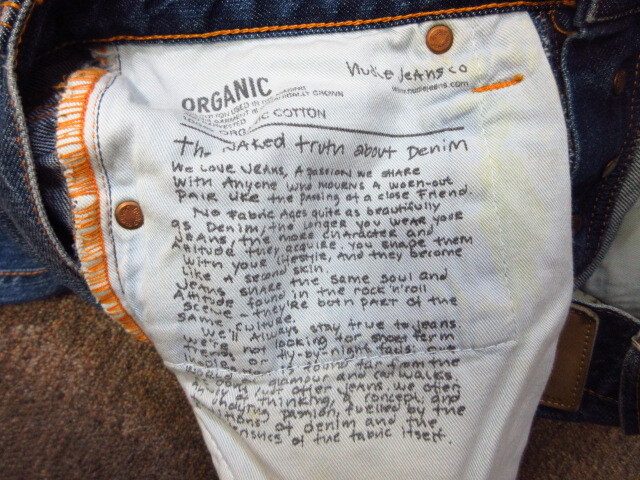 Nudie Jeans co
www.nudiejeans.com
ORGANIC
USED IN
GARMENT IS GROWN
ORGANIC COTTON
The Naked truth about Denim
We Love Jeans, A passion we share
with Anyone who mourns a worn-out
pair like the passing of a close friend.
No fabric ages quite as beautifully
as Denim, the longer you wear your
Jeans, the more character and
attitude they acquire. You shape them
with your lifestyle, and they become
like a second skin
Jeans share the same soul and
Attitude found in the rock'n'roll
scene - they're both part of the
same culture.
We'll always stay true to jeans
We're not looking for short term
trends or fly-by-night fads. Our
is found far from the
glamour and catwalks
of most other jeans. We often
thinking, a concept, and
passion, fuelled by the
of denim and the
of the fabric itself.